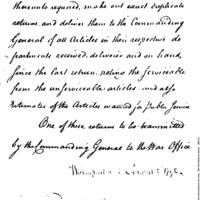 thereunto required, make out exact duplicate
returns, and deliver them to the Commanding
General of all Articles in their respective de
partments received, deliveries and on hand,
since the last return, noting the serviceable
from the unserviceable articles and also
Estimates of the Articles wanted for Public Service
One of these returns to be transmitted
by the Commanding General to the War Office